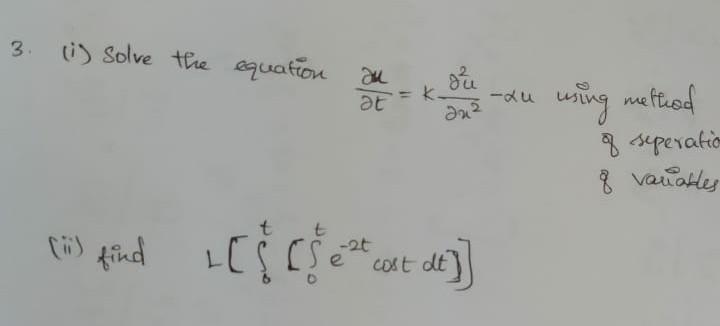 3. (i) Solve the equation ∂u/∂t = K ∂²u/∂x² - αu using method
of seperatio
of variables
(ii) find L[∫₀ᵗ [∫₀ᵗ e^-2t cost dt]]